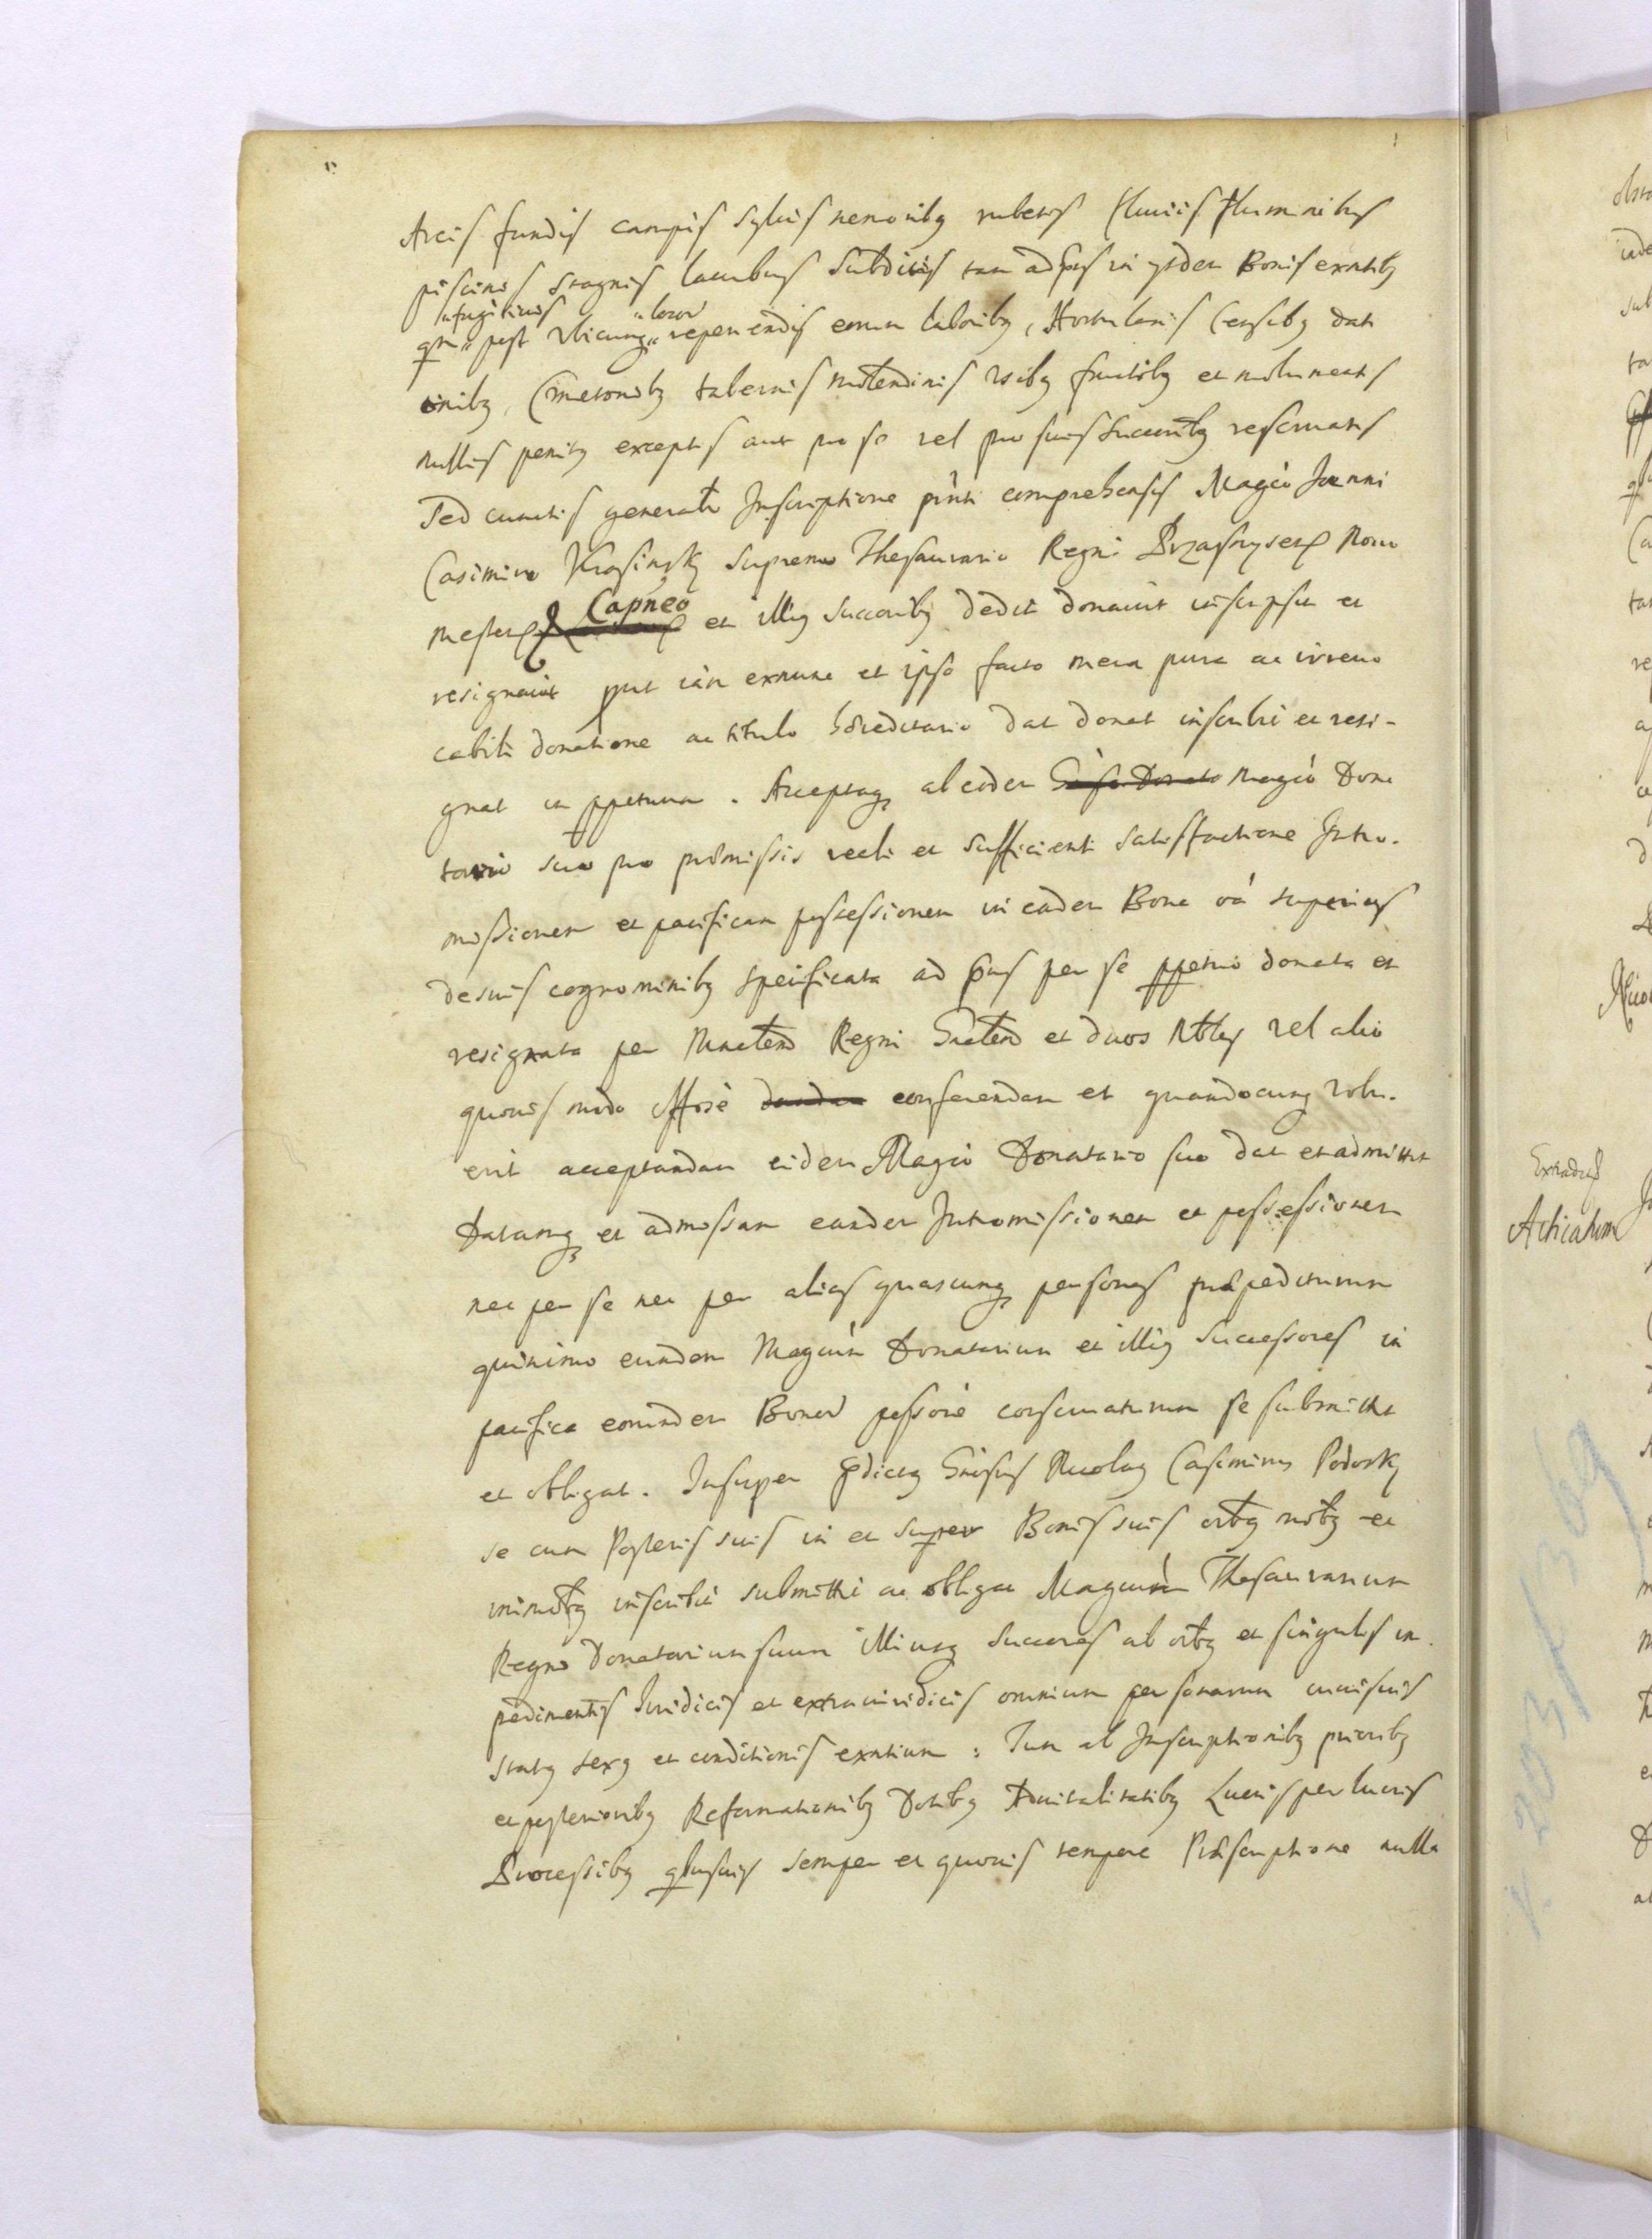 Arcis fundis campis syluis nemoribq rubetis fluuiis fluminibus
piscinis stagnis lacubus Subditis tam ad pns in ysdem Bonis exntibq
profugitiuis locor
qm post Vbicunq reperiendis eorum laboribq, Hortulanis Censibq dati
onibq, Cmetonibq tabernis molendinis vsibq fructibq et molumentis
nullis penitq exceptis aut pro se vel pro suis Succoribq reseruatis
Sed cunctis generali Inscriptione pnti comprehensis Magco Joanni
Casimiro Krasinsky Supremo Thesaurario Regni Przasnysen Nouo
Capneo
mesten et illiq Succoribq dedit donauit inscripsit et
resignauit put ian exnunc et ipso facto mera pura ac irreuo
cabili donatione ac titulo hereditario dat donat inscribi et resi-
gnat in ppetuum. Acceptaq ab eodem Magco Dona
tario suo pro premissis reali et sufficienti satisfactione Intro-
missionem et pacificam possessionem in eadem Bona oa superius
de suis cognominibq specificata ad pns per se ppetuo donata et
resignata per Mnrlem Regni Gnrlem et duos Nbles vel alio
quouis modo offose conferendam et quandocunq volu-
erit acceptandam eidem Magco Donatario suo dat et admittit
Datamq et admissam eandem Intromissionem et possessionem
nec per se nec per alias quascunq personas prepediturum
quinimo eundem Magcum Donatarium et illiq Successores in
pacifica eorundem Bonor possone conseruaturum se submittit
et obligat. Insuper pdictq Gnosus Nicolaq Casimirus Podosky
se cum Posteris suis in et super Bonis suis oibq mobq et
immobq inscribi submitti ac obligat Magcum Thesaurarium
Regni Donatarium suum illiusq Succores ab oibq et singulis im
pedimentis Iuridicis et extraiuridicis omnium personarum cuiusuis
statq sexq et conditionis exntium: Tum ab Inscriptionibq prioribq
et posterioribq Reformationibq Dotibq Aduitalitatibq Lucris perlucris
Processibq qbusuis semper et quouis tempore Prescriptione nulla
Extradit
Acticatum